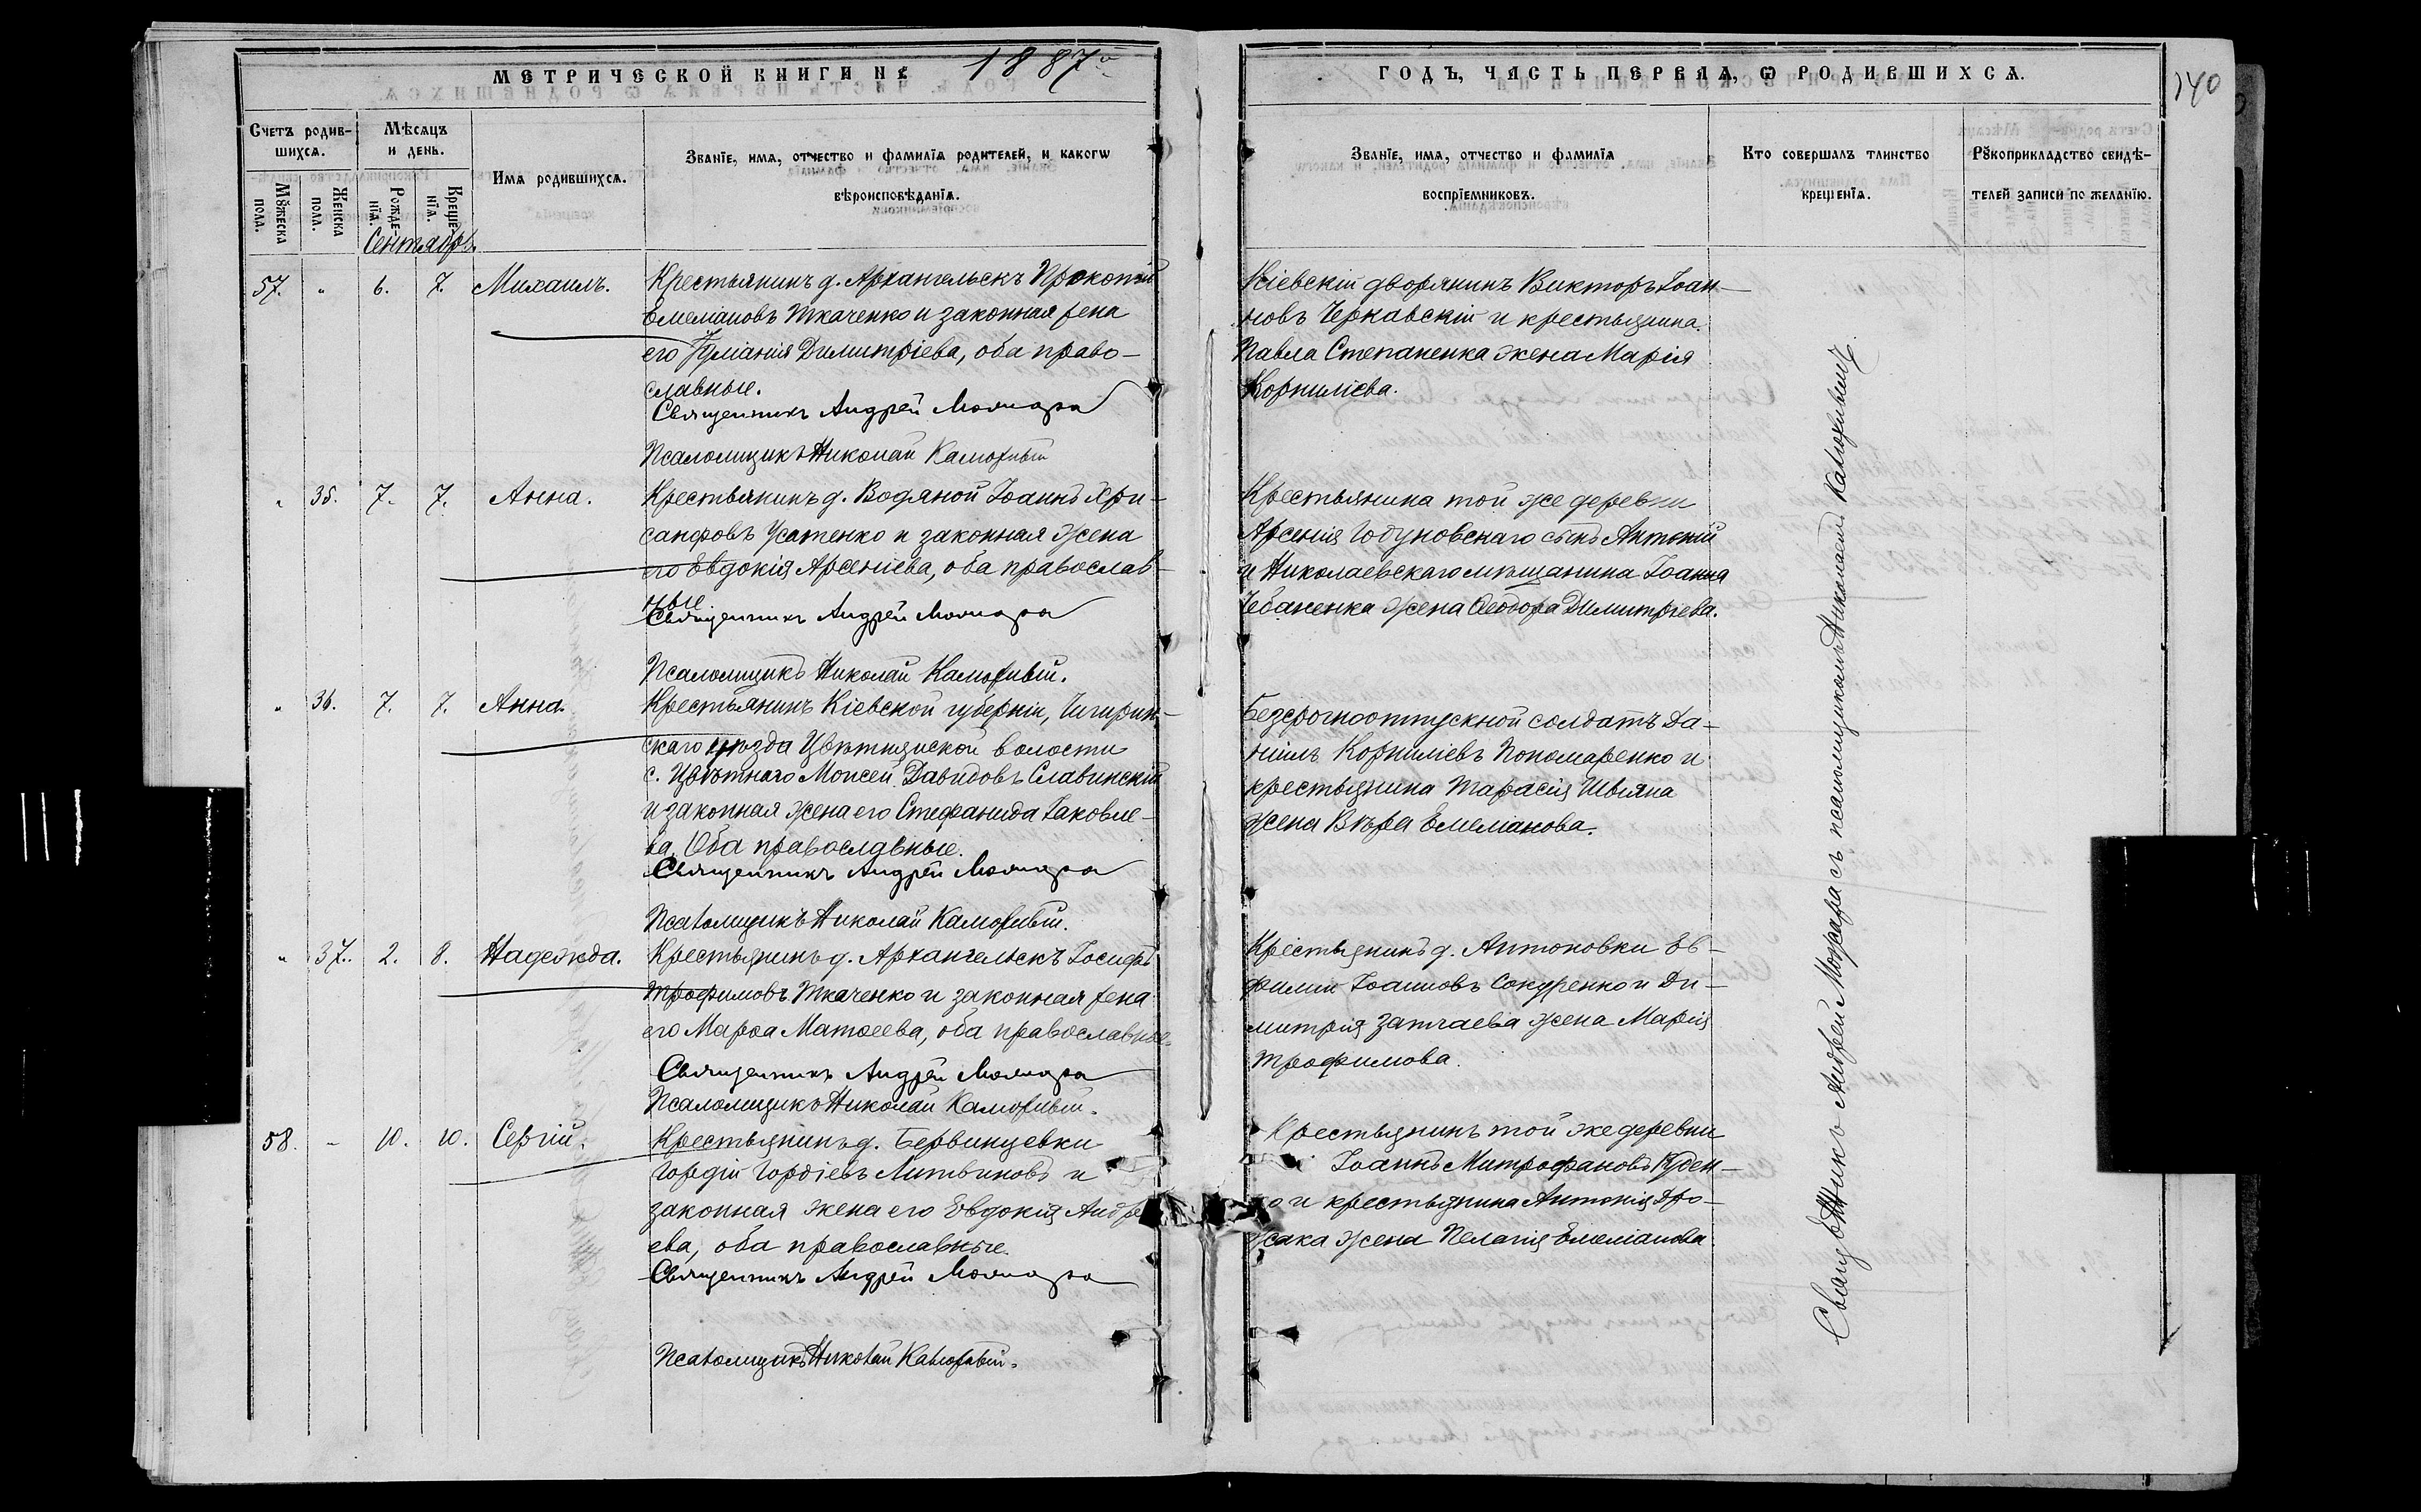 МЕТРИЧЕСКОЙ КНИГИ НА 1887й
ГОДЪ, ЧАСТЬ ПЕРВАЯ, Ѡ РОДИВШИХСЯ.
140
Счетъ родив-
шихся.
Мѣсяцъ
и день.
Имя родившихся.
Званїе, имя, отчество и фамилїя родителей, и какогѡ
вѣроисповѣданїя.
Званїе, имя, отчество и фамилїя
воспрїемниковъ.
Кто совершалъ таинство
крещенїя.
Рꙋкоприкладство свидѣ-
телей записи по желанїю.
Мꙋжеска
пола.
Женска
пола.
Рожде-
нїя.
Креще-
нїя.
Сентябрь.
57. " 6. 7. Михаилъ.
Крестьянинъ д. Архангельскъ Прокопій
Емеліановъ Ткаченко и законная жена
его Іуліанія Димитріева, оба право-
славные.
Священникъ Андрей Можара
Псаломщикъ Николай
Кіевскій дворянинъ Викторъ Іоан-
новъ Черкавскій и крестьянина
Павла Степаненка жена Марія
Корниліева.
" 35. 7. 7. Анна.
Крестьянинъ д. Водяной Іоаннъ Хри-
санфовъ Усатенко и законная жена
его Евдокія Арсеніева, оба православ-
ные
Священникъ Андрей Можара
Псаломщикъ Николай
Крестьянина той же деревни
Арсенія Годуновскаго сынъ Антоній
и Николаевскаго мѣщанина Іоанна
Чебаненка жена Ѳеодора Димитріева.
" 36. 7. 7. Анна.
Крестьянинъ Кіевской губерніи, Чигирин-
скаго уѣзда Цвѣтнянской волости
с. Цвѣтнаго Моисей Давидовъ Славинскій
и законная жена его Стефанида Іаковле-
ва, Оба православные.
Священникъ Андрей Можара
Псаломщикъ Николай
Безсрочноотпускной солдатъ Да-
ніилъ Корниліевъ Пономаренко и
крестьянина Тарасія Швіяна
жена Вѣра Емеліанова.
" 37. 2. 8. Надежда.
Крестьянинъ д. Архангельскъ Іосифъ
Трофимовъ Ткаченко и законная жена
его Марѳа Матѳеева, оба православные.
Священникъ Андрей Можара
Псаломщикъ Николай
Крестьянинъ д. Антоновки Ев-
фимій Іоанновъ Сокуренко и Ди-
митрія жена Марія
Трофимова.
58. " 10. 10. Сергій.
Крестьянинъ д. Бервинцевки
Гордій Гордіевъ Литвиновъ и
законная жена его Евдокія Андре
ева, оба православные.
Священникъ Андрей Можара
Псаломщикъ Николай
Крестьянинъ той же деревни
Іоаннъ Митрофановъ Куцен-
ко и крестьянина Антонія Дро-
жака жена Пелагія Емеліанова
Священникъ Андрей Можара съ псаломщикомъ Николаемъ